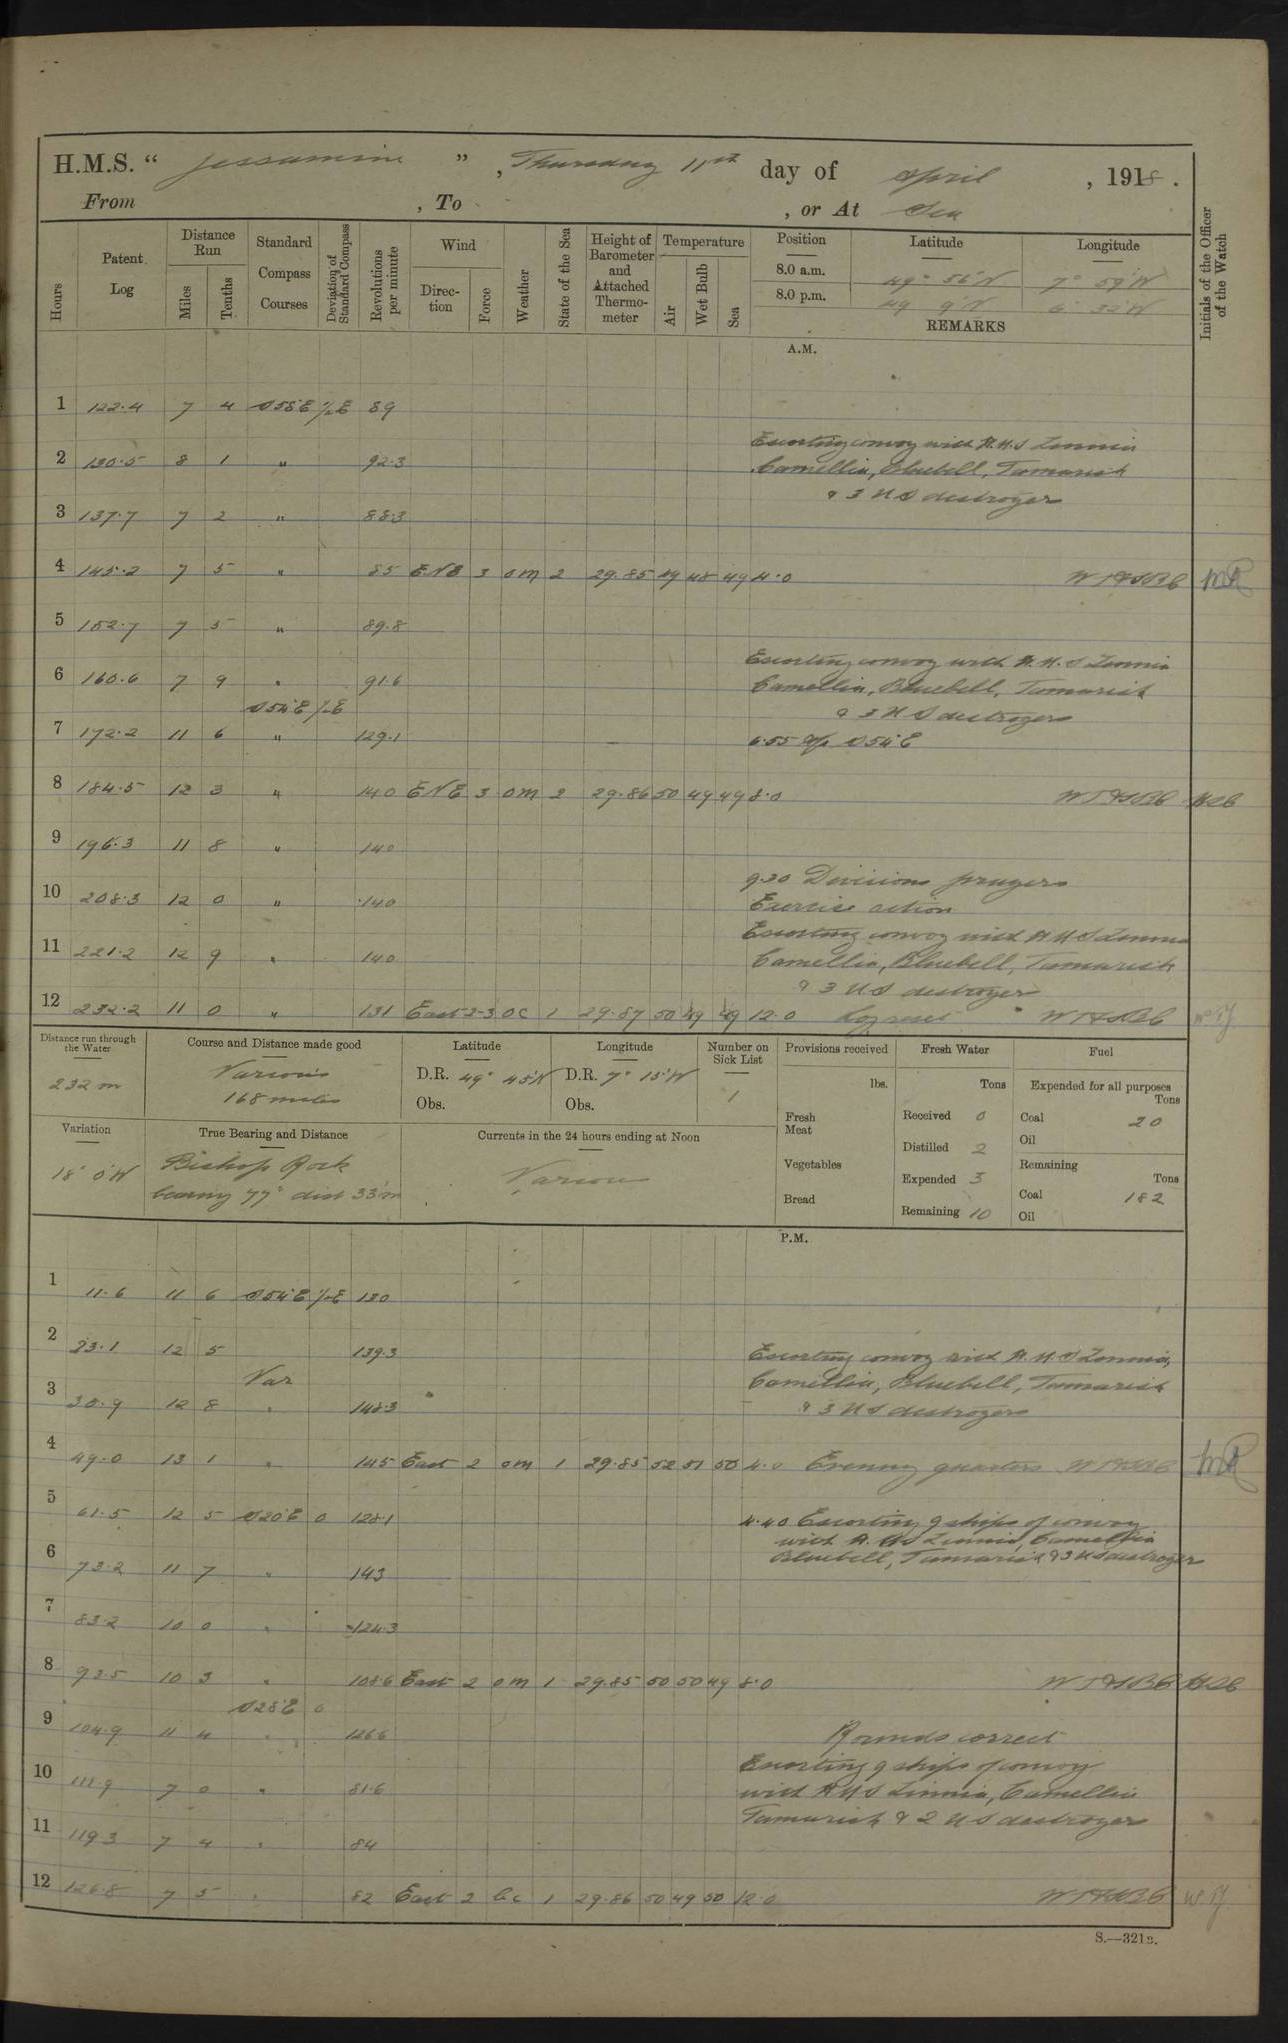 H.M.S. “ Jessamine ” , Thursday 11th day of April , 1918 .
From , To , or At Sea
Hours
Patent Log
Distance Run
Miles
Tenths
Standard Compass Courses
Deviation of Standard Compass
Revolutions per minute
Wind
Direc-tion
Force
Weather
State of the Sea
Height of Barometer and Attached Thermo-meter
Temperature
Air
Wet Bulb
Sea
Position Latitude Longitude
8.0 a.m. 49° 56'N 7° 59'W
8.0 p.m. 49 9'N 6 32'W
REMARKS
Initials of the Officer of the Watch
A.M.
1 122.4 7 4 S55E ½E 89
Escorting convoy with H.M.S Zinnia
2 130.5 8 1 " 92.3 Camellia, Bluebell, Tamarisk
& 3 US destroyer
3 137.7 7 2 " 88.3
4 145.2 7 5 " 85 ENE 3 om 2 29.85 49 48 49 4.0
5 152.7 7 5 " 89.8
Escorting convoy with H.M.S Zinnia
6 160.6 7 9 " 91.6 Camellia, Bluebell, Tamarisk
S54E ½E & 3 US destroyers
7 172.2 11 6 " 129.1 6.55 a/c S54E
8 184.5 12 3 " 140 ENE 3 om 2 29.86 50 49 49 8.0
9 196.3 11 8 " 140
9.30 Divisions prayers
10 208.3 12 0 " 140 Exercise action
Escorting convoy with HMS Zinnia
11 221.2 12 9 " 140 Camellia, Bluebell, Tamarisk
& 3 US destroyer
12 232.2 11 0 " 131 East 2-3 oc 1 29.87 50 49 49 12.0 Log reset
Distance run through the Water
232 m
Course and Distance made good
Various
168 miles
Latitude
D.R. 49° 45'N
Obs.
Longitude
D.R. 7° 15'W
Obs.
Number on Sick List
1
Variation
18° 0'W
True Bearing and Distance
Bishop Rock
bearing 77° dist 33'm
Currents in the 24 hours ending at Noon
Various
Provisions received
lbs.
Fresh Meat
Vegetables
Bread
Fresh Water
Tons
Received 0
Distilled 2
Expended 3
Remaining 10
Fuel
Expended for all purposes
Tons
Coal 20
Oil
Remaining
Tons
Coal 182
Oil
P.M.
1 11.6 11 6 S54E ½E 130
2 23.1 12 5 139.3 Escorting convoy with H.M.S Zinnia,
Var Camellia, Bluebell, Tamarisk
3 12 8 " 148.3 & 3 US destroyers
4 49.0 13 1 " 145 East 2 om 1 29.85 52 51 50 4.0 Evening quarters
5 61.5 12 5 S20E 0 128.1 4.40 Escorting 9 ships of convoy
with H.M.S Zinnia, Camellia
6 73.2 11 7 " 143 Bluebell, Tamarisk & 3 US destroyer
7 83.2 10 0 " 124.3
8 93.5 10 3 " 108.6 East 2 om 1 29.85 50 50 49 8.0
S28E 0
9 104.9 11 4 " 126.6 Rounds correct
Escorting 9 ships of convoy
10 111.9 7 0 " 81.6 with HMS Zinnia, Camellia
Tamarisk & 2 US destroyer
11 119.3 7 4 " 84
12 126.8 7 5 " 82 East 2 bc 1 29.86 50 49 50 12.0
S.—321B.